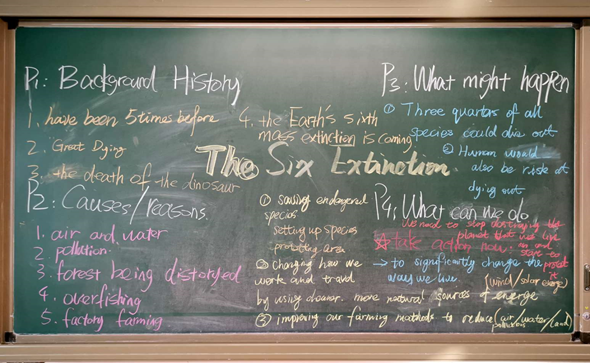 P1: Background History
1. have been 5 times before
2. Great Dying
3. the death of the dinosaur
4. the Earth's sixth
mass extinction is coming
The Six Extinction
P2: Causes/reasons.
1. air and water
2. pollution.
3. forest being distoryed
4. overfishing
5. factory farming
P3: What might happen
① Three quarters of all
species could die out
② Human would
also be risk at
dying out
① saving endagered
species
setting up species
protecting area
② changing how we
work and travel
by using cleaner. more natural sources of energe
(wind/solar energe)
③ improving our farming methods to reduce (air/water/land)
pollutions
P4: What can we do
We need to stop destroying the
planet that we live
on and
start to
protect
it
☆ take action now!
→ to significantly change the
ways we live.